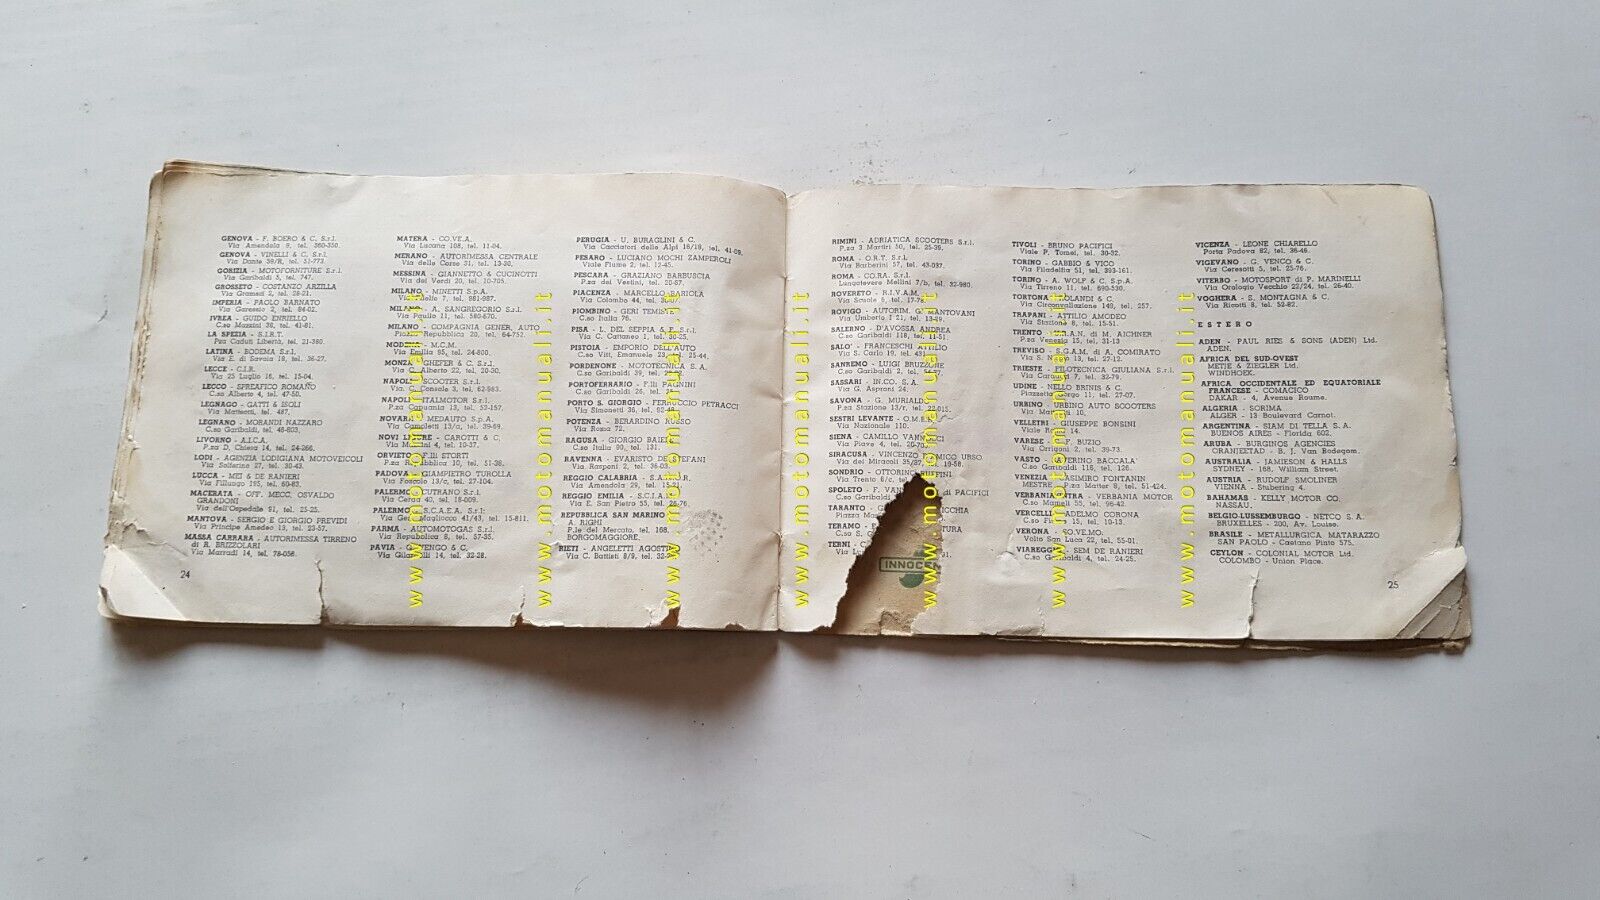 GENOVA - F. BOERO & C. S.r.l.
Via Amendola 9, tel. 360-350.
GENOVA - VINELLI & C. S.r.l.
Via Dante 59/R, tel. 51-773.
GORIZIA - MOTOFORNITURE S.r.l.
Via Garibaldi 5, tel. 747.
GROSSETO - COSTANZO ARZILLA
Via Gramsci 2, tel. 28-21.
IMPERIA - PAOLO BARNATO
Via Garessio 2, tel. 84-02.
IVREA - GUIDO ENRIELLO
C.so Massini 38, tel. 41-81.
LA SPEZIA - S.I.R.T.
P.za Caduti Libertà, tel. 21-360.
LATINA - BODEMA S.r.l.
Via E. di Savoia 19, tel. 36-27.
LECCE - C.I.R.
Via 25 Luglio 16, tel. 15-04.
LECCO - SPREAFICO ROMANO
C.so Alberto 4, tel. 47-50.
LEGNAGO - GATTI & ISOLI
Via Matteotti, tel. 487.
LEGNANO - MORANDI NAZZARO
C.so Garibaldi, tel. 48-803.
LIVORNO - A.I.C.A.
P.za D. Chiesa 14, tel. 24-266.
LODI - AGENZIA LODIGIANA MOTOVEICOLI
Via Solferino 27, tel. 30-43.
LUCCA - MEI & DE RANIERI
Via Fillungo 195, tel. 60-83.
MACERATA - OFF. MECC. OSVALDO
GRANDONI
Via dell'Ospedale 91, tel. 25-25.
MANTOVA - SERGIO E GIORGIO PREVIDI
Via Principe Amedeo 13, tel. 23-57.
MASSA CARRARA - AUTORIMESSA TIRRENO
di R. BRIZZOLARI
Via Marradi 14, tel. 78-056.
24
MATERA - CO.VE.A.
Via Lucana 108, tel. 11-04.
MERANO - AUTORIMESSA CENTRALE
Via delle Corse 31, tel. 13-30.
MESSINA - GIANNETTO & CUCINOTTI
Via dei Verdi 20, tel. 10-705.
MILANO - MINETTI S.p.A.
tel. 981-987.
A. SANGREGORIO S.r.l.
Via Paullo 21, tel. 580-670.
MILANO - COMPAGNIA GENER. AUTO
Repubblica 20, tel. 64-752.
M.C.M.
Via Emilia 95, tel. 24-800.
GHEFER & C. S.r.l.
Alberto 22, tel. 20-30.
NAPOLI SCOOTER S.r.l.
Console 3, tel. 62-983.
NAPOLI ITALMOTOR S.r.l.
P.za Capuania 13, tel. 52-157.
MEDAUTO S.p.A.
Via Gampletti 13/a, tel. 39-69.
NOVI LIGURE - CAROTTI & C.
4, tel. 10-37.
ORVIETO - F.lli STORTI
P.za Repubblica 10, tel. 51-38.
PADOVA - GIAMPIETRO TUROLLA
Via Foscolo 13/c, tel. 27-104.
PALERMO CUTRANO S.r.l.
Via Cerda 40, tel. 18-009.
PALERMO S.C.A.E.A. S.r.l.
Magliocco 41/43, tel. 15-811.
PARMA - AUTOMOTOGAS S.r.l.
Via Repubblica 8, tel. 57-35.
PAVIA
14, tel. 32-28.
PERUGIA - U. BURAGLINI & C.
Via Cacciatori delle Alpi 16/18, tel. 41-09.
PESARO - LUCIANO MOCHI ZAMPEROLI
Viale Fiume 2, tel. 12-45.
PESCARA - GRAZIANO BARBUSCIA
P.za dei Vestini, tel. 20-87.
PIACENZA - MARCELLO BARIOLA
Via Colombo 44, tel.
PIOMBINO - GERI TEMISTO
C.so Italia 76.
PISA - L. DEL SEPPIA & F. S.r.l.
Via C. Cattaneo 1, tel. 30-25.
PISTOIA - EMPORIO DELL'AUTO
C.so Vitt. Emanuele 23, tel. 25-44.
PORDENONE - MOTOTECNICA S. A.
C.so Garibaldi 39, tel.
PORTOFERRARIO - F.lli PAGNINI
C.so Garibaldi 26, tel.
PORTO S. GIORGIO - FERRUCCIO PETRACCI
Via Simonetti 36, tel.
POTENZA - BERARDINO RUSSO
Via Rosa 72.
RAGUSA - GIORGIO BAIERI
C.so Italia 90, tel. 131.
RAVENNA - EVARISTO DE STEFANI
Via Rasponi 2, tel. 36-03.
REGGIO CALABRIA -
Via Amendola 29, tel. 15-21.
REGGIO EMILIA - S.C.I.A.R.
Via E. San Pietro 55, tel. 26-76.
REPUBBLICA SAN MARINO
A. RIGHI
P.le del Mercato, tel. 168,
BORGOMAGGIORE.
RIETI - ANGELETTI AGOSTINO
Via C. Battisti 8/9, tel.
RIMINI - ADRIATICA SCOOTERS S.r.l.
P.za 3 Martiri 50, tel. 25-36.
ROMA - O.R.T. S.r.l.
Via Barberini 57, tel. 43-037.
ROMA - CO.RA. S.r.l.
Lungotevere Mellini 7/b, tel. 32-980.
ROVERETO - R.I.V.A.M.
Via Savole 6, tel.
ROVIGO - AUTORIM. G. MANTOVANI
Via Umberto I 21, tel. 13-49.
SALERNO - D'AVOSSA ANDREA
C.so Garibaldi 118, tel. 11-51.
SALO' - FRANCESCHI ATTILIO
Via S. Carlo 19, tel. 431.
SANREMO - LUIGI BRUZZONE
C.so Garibaldi 2, tel.
SASSARI - IN.CO. S. A.
Via G. Asproni 24.
SAVONA - G. MURIALDO
P.za Stazione 13/r, tel. 22-015.
SESTRI LEVANTE - O.M.E.
Via Nazionale 110.
SIENA - CAMILLO VANNUCCI
Via Piave 4, tel.
SIRACUSA - VINCENZO URSO
Via dei Miracoli 35/87, tel. 19-58.
SONDRIO - OTTORINO RUFFINI
Via Trento 6/c, tel.
SPOLETO - F. di PACIFICI
C.so Garibaldi
TARANTO - G.
Piazza
TERAMO -
C.so S. G
TERNI - C
Via L
INNOCEN
TIVOLI - BRUNO PACIFICI
Viale P. Tomei, tel. 30-32.
TORINO - GABBIO & VICO
Via Filadelfia 51, tel. 393-161.
TORINO - A. WOLF & C. S.p.A.
Via Tirreno 11, tel. 690-530.
TORTONA ORLANDI & C.
Via Circonvallazione 149, tel. 257.
TRAPANI - ATTILIO AMODEO
Via Stazione 8, tel. 15-51.
TRENTO di M. AICHNER
P.za Venezia 15, tel. 31-13
TREVISO - S.G.A.M. di A. COMIRATO
Via S. 13, tel. 27-12.
TRIESTE - FILOTECNICA GIULIANA S.r.l.
Via 7, tel. 32-79.
UDINE - NELLO BRINIS & C.
Piazzetta 11, tel. 27-07.
URBINO - URBINO AUTO SCOOTERS
Via 10.
VELLETRI - GIUSEPPE BONSINI
Viale 14.
VARESE - F. BUZIO
Via Orrigoni 2, tel. 39-73.
VASTO - SAVERINO BACCALA'
C.so Garibaldi 118, tel. 126.
VENEZIA CASIMIRO FONTANIN
MESTRE P.za Matter 8, tel. 51-424.
VERBANIA INTRA - VERBANIA MOTOR
C.so Mameli 55, tel. 96-42.
VERCELLI - ADELMO CORONA
C.so 15, tel. 10-13.
VERONA - SO.VE.MO.
Volto San Luca 22, tel. 55-01.
VIAREGGIO - SEM DE RANIERI
C.so Garibaldi 4, tel. 24-25.
VICENZA - LEONE CHIARELLO
Porta Padova 82, tel. 36-46.
VIGEVANO - G. VENCO & C.
Via Ceresotti 5, tel. 25-76.
VITERBO - MOTOSPORT di P. MARINELLI
Via Orologio Vecchio 22/24, tel. 26-40.
VOGHERA - S. MONTAGNA & C.
Via Ricotti 8, tel. 52-82.
ESTERO
ADEN - PAUL RIES & SONS (ADEN) Ltd.
ADEN.
AFRICA DEL SUD-OVEST
METJE & ZIEGLER Ltd.
WINDHOEK.
AFRICA OCCIDENTALE ED EQUATORIALE
FRANCESE - COMACICO
DAKAR - 4, Avenue Roume.
ALGERIA - SORIMA
ALGER - 13 Boulevard Carnot.
ARGENTINA - SIAM DI TELLA S. A.
BUENOS AIRES - Florida 602.
ARUBA - BURGINOS AGENCIES
ORANJESTAD - B. J. Van Bodegom.
AUSTRALIA - JAMIESON & HALLS
SYDNEY - 168, William Street.
AUSTRIA - RUDOLF SMOLINER
VIENNA - Stubering 4.
BAHAMAS - KELLY MOTOR CO.
NASSAU.
BELGIO-LUSSEMBURGO - NETCO S. A.
BRUXELLES - 200, Av. Louise.
BRASILE - METALLURGICA MATARAZZO
SAN PAOLO - Caetano Pinto 575.
CEYLON - COLONIAL MOTOR Ltd.
COLOMBO - Union Place.
25
www.motomanuali.it
www.motomanuali.it
www.motomanuali.it
www.motomanuali.it
www.motomanuali.it
www.motomanuali.it
www.motomanuali.it